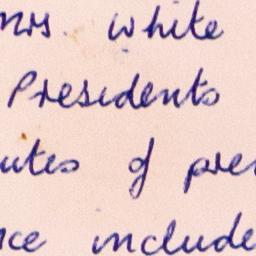 Mrs. White
Presidents
utes of pre
ce include